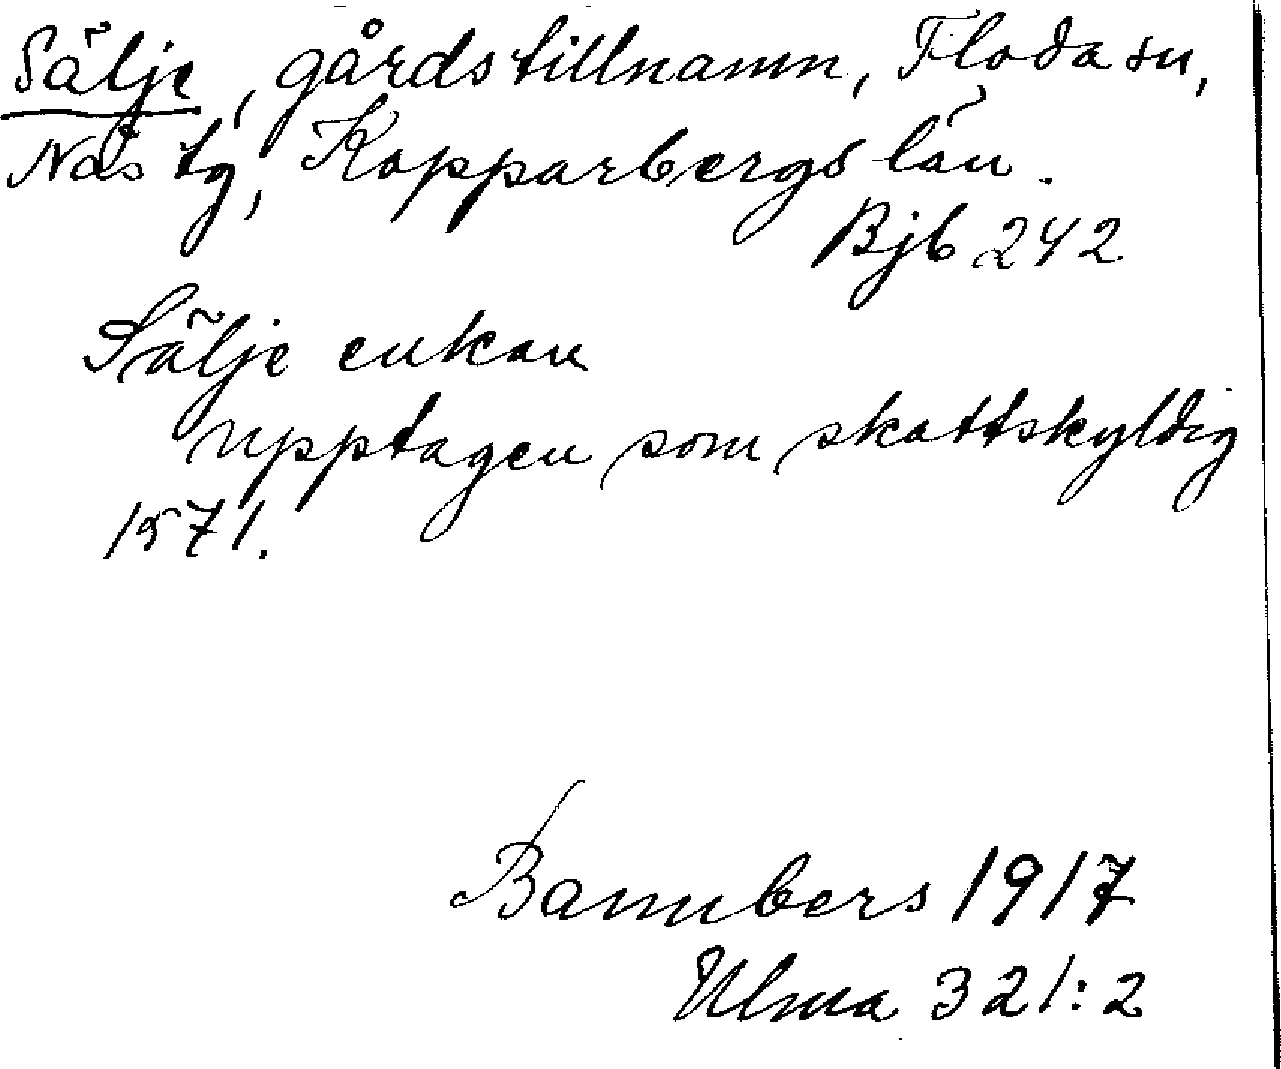 Sälje, gårdstillnamn, Floda sn,
Nås tg, Kopparbergs län.
Bjb 242
Sälje enkan
upptagen som skattskyldig
1571.
Bannbers 1917
Ulma 321:2